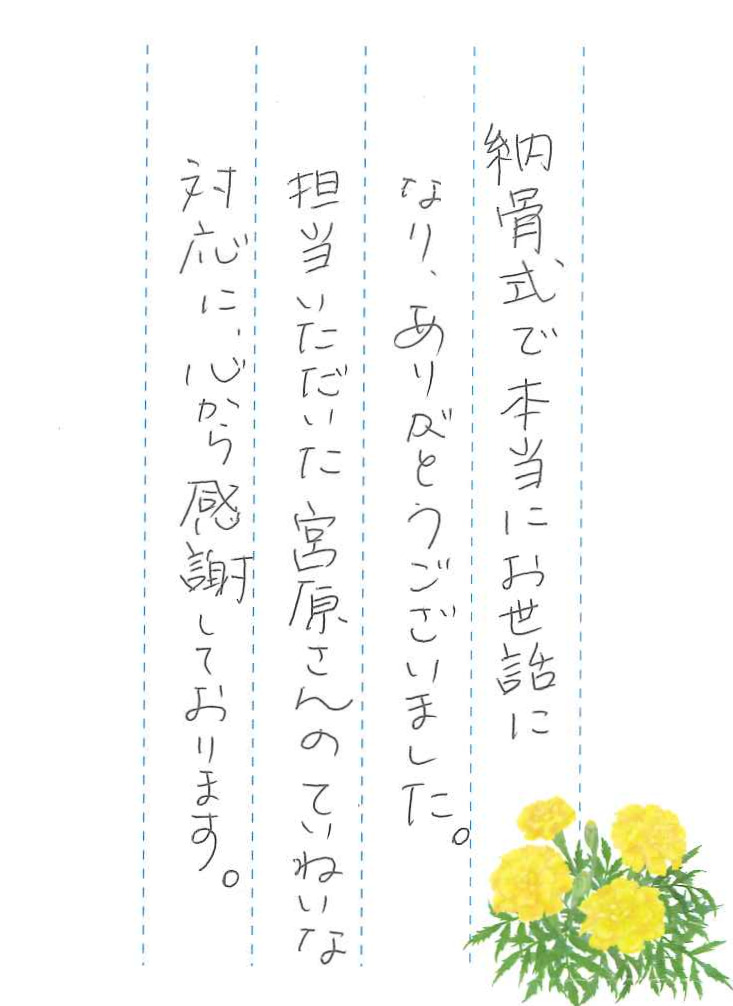 納骨式で本当にお世話に
なり、ありがとうございました。
担当いただいた宮原さんのていねいな
対応に、心から感謝しております。